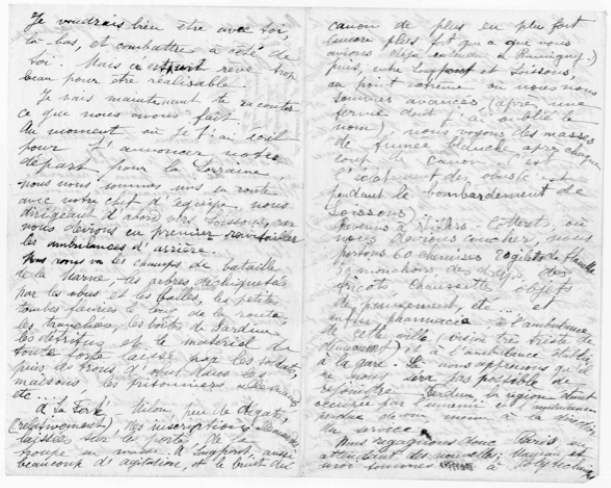 Je voudrais bien être avec toi,
là-bas, et combattre à côté de
toi. Mais ce serait rêve trop
beau pour être réalisable.
Je vais maintenant te raconter
ce que nous avons fait
Au moment où je t'ai écrit
pour t'annoncer notre
départ pour la Lorraine,
nous nous sommes mis en route
avec notre chef d'équipe, nous
dirigeant d'abord vers Soissons, où
nous devions en premier ravitailler
les ambulances d'arrière.
nous vu les champs de bataille
de la Marne, les arbres déchiquetés
par les obus et les balles, les petites
tombes fleuries le long de la route,
les tranchées, les boîtes de sardines
les détritus et le matériel de
toute sorte laissé par les soldats,
puis les trous d'obus dans les
maisons. les prisonniers allemands
etc...
A la Ferté-Milon, peu de dégâts,
(relativement), des inscriptions
laissées sur les portes de la
troupe en A Longpont, aussi
beaucoup d'agitation, et le bruit du
canon de plus en plus fort
(encore plus fort que ce que nous
avions déjà entendu à
puis, entre Longpont et Soissons,
au point extrême où nous nous
sommes avancés, (après une
ferme dont j'ai oublié le
nom), nous voyons des masses
de fumée blanche après chaque
coup de canon. C'est
l'éclatement des obus et
pendant le bombardement de
Soissons).
Revenus à Villers-Cotterets, où
nous devions coucher, nous
portons 60 chemises
des draps, des
tricots, chaussettes, objets
de pansement, etc... et
pharmacie à l'ambulance
de cette ville (vision très triste de
et à l'ambulance établie
à la gare. Là nous apprenons qu'il
ne sera pas possible de
rejoindre Verdun, la région étant
occupée par l'ennemi et
du service
Nous regagnons donc Paris en
attendant des nouvelles; et
moi sommes à Polytechnique